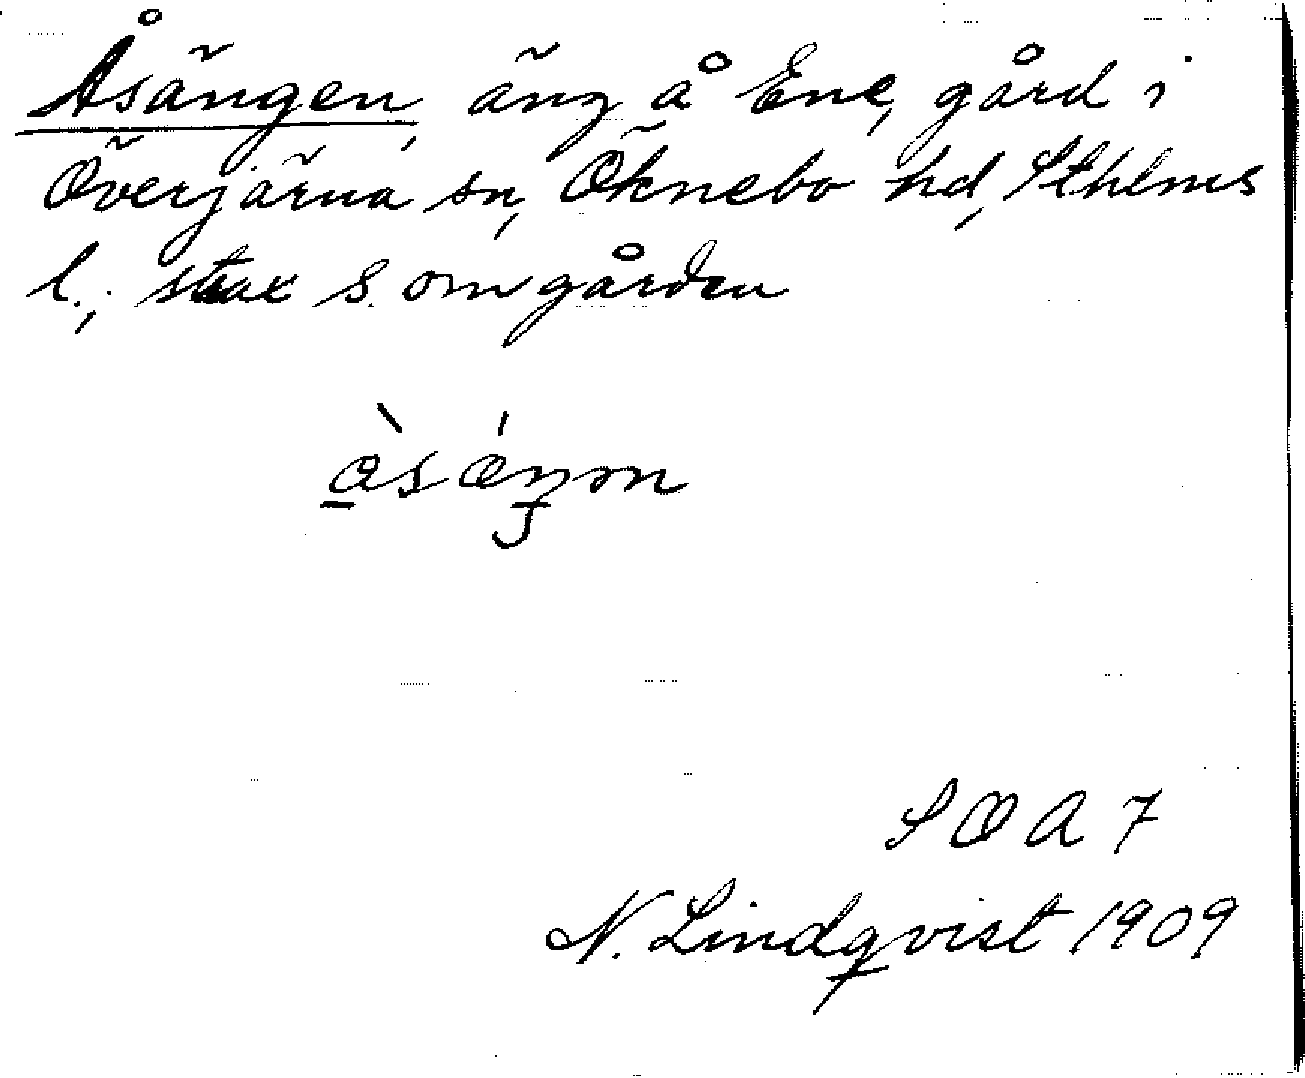 Åsängen, äng å Ene, gård i
Överjärna sn, Öknebo hd, Sthlms
l., strax S. om gården
S O A 7
N. Lindqvist 1909